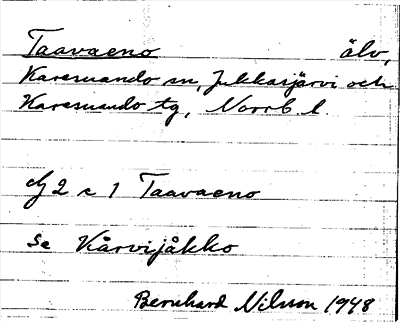 Taavaeno älv,
Karesuando sn, Jukkasjärvi och
Karesuando tg, Norrb. l.
2 c 1 Taavaeno
Se Kårvijåkko
Bernhard Nilsson 1948